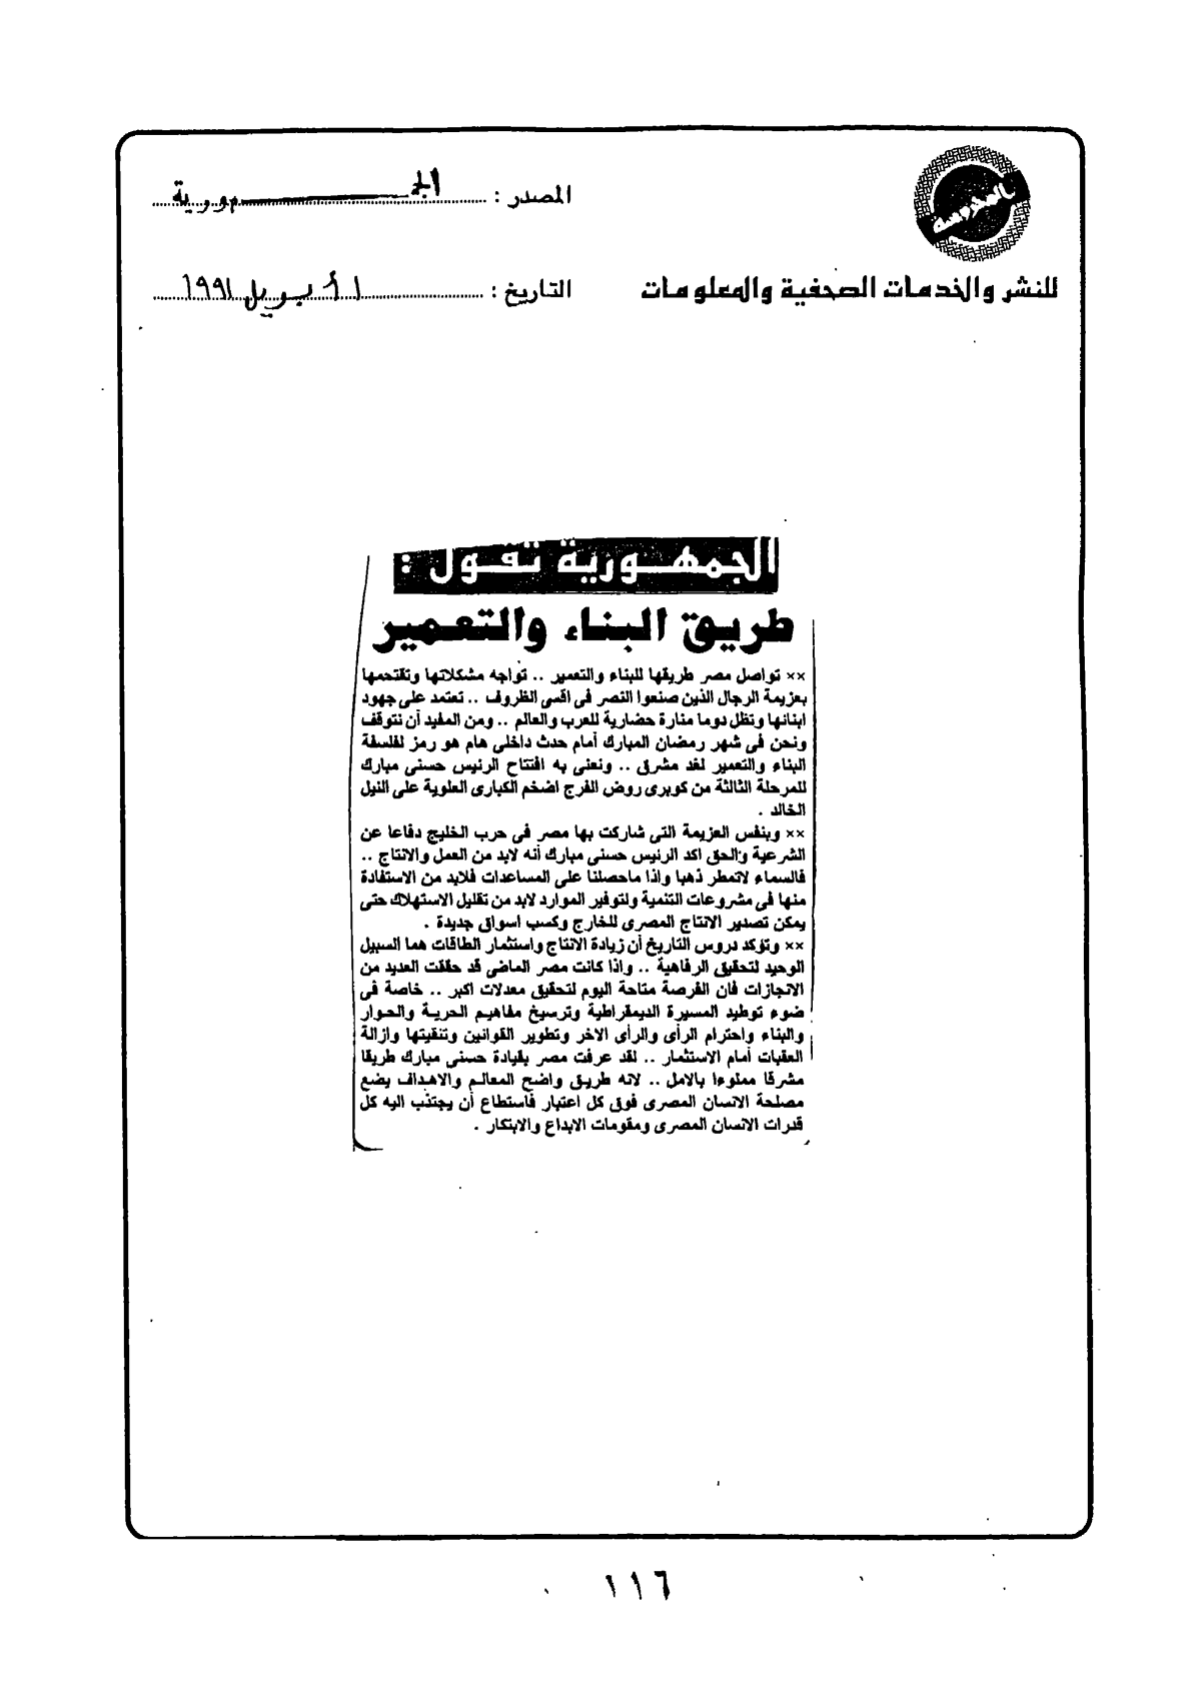 المحروسة
للنشر والخدمات الصحفية والمعلومات
المصدر : الجمهورية
التاريخ : ١ أبريل ١٩٩١
الجمهورية تقول :
طريق البناء والتعمير
×× تواصل مصر طريقها للبناء والتعمير .. تواجه مشكلاتها وتقتحمها
بعزيمة الرجال الذين صنعوا النصر فى اقسى الظروف .. تعتمد على جهود
ابنائها وتظل دوما منارة حضارية للعرب والعالم .. ومن المفيد أن نتوقف
ونحن فى شهر رمضان المبارك أمام حدث داخلى هام هو رمز لفلسفة
البناء والتعمير لغد مشرق .. ونعنى به افتتاح الرئيس حسنى مبارك
للمرحلة الثالثة من كوبرى روض الفرج اضخم الكبارى العلوية على النيل
الخالد .
×× وبنفس العزيمة التى شاركت بها مصر فى حرب الخليج دفاعا عن
الشرعية والحق اكد الرئيس حسنى مبارك أنه لابد من العمل والانتاج ..
فالسماء لاتمطر ذهبا واذا ماحصلنا على المساعدات فلابد من الاستفادة
منها فى مشروعات التنمية ولتوفير الموارد لابد من تقليل الاستهلاك حتى
يمكن تصدير الانتاج المصرى للخارج وكسب اسواق جديدة .
×× وتؤكد دروس التاريخ أن زيادة الانتاج واستثمار الطاقات هما السبيل
الوحيد لتحقيق الرفاهية .. واذا كانت مصر الماضى قد حققت العديد من
الانجازات فان الفرصة متاحة اليوم لتحقيق معدلات اكبر .. خاصة فى
ضوء توطيد المسيرة الديمقراطية وترسيخ مفاهيم الحرية والحوار
والبناء واحترام الرأى والرأى الاخر وتطوير القوانين وتنقيتها وازالة
العقبات أمام الاستثمار .. لقد عرفت مصر بقيادة حسنى مبارك طريقا
مشرقا مملوءا بالامل .. لانه طريق واضح المعالم والاهداف يضع
مصلحة الانسان المصرى فوق كل اعتبار فاستطاع أن يجتذب اليه كل
قدرات الانسان المصرى ومقومات الابداع والابتكار .
١١٦